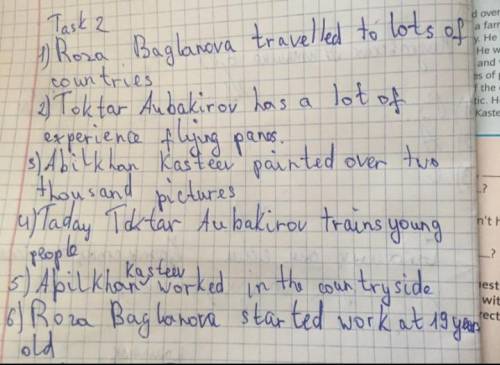 Task 2
1) Roza Baglanova travelled to lots of
countries
2) Toktar Aubakirov has a lot of
experience flying panas.
3) Abilkhan Kasteev painted over two
thousand pictures
4) Taday Toktar Aubakirov trains young
people
5) Abilkhan Kasteev worked in the countryside
6) Roza Baglanova started work at 19 years
old